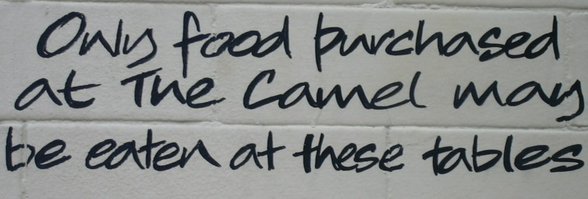 Only food purchased
at The Camel may
be eaten at these tables